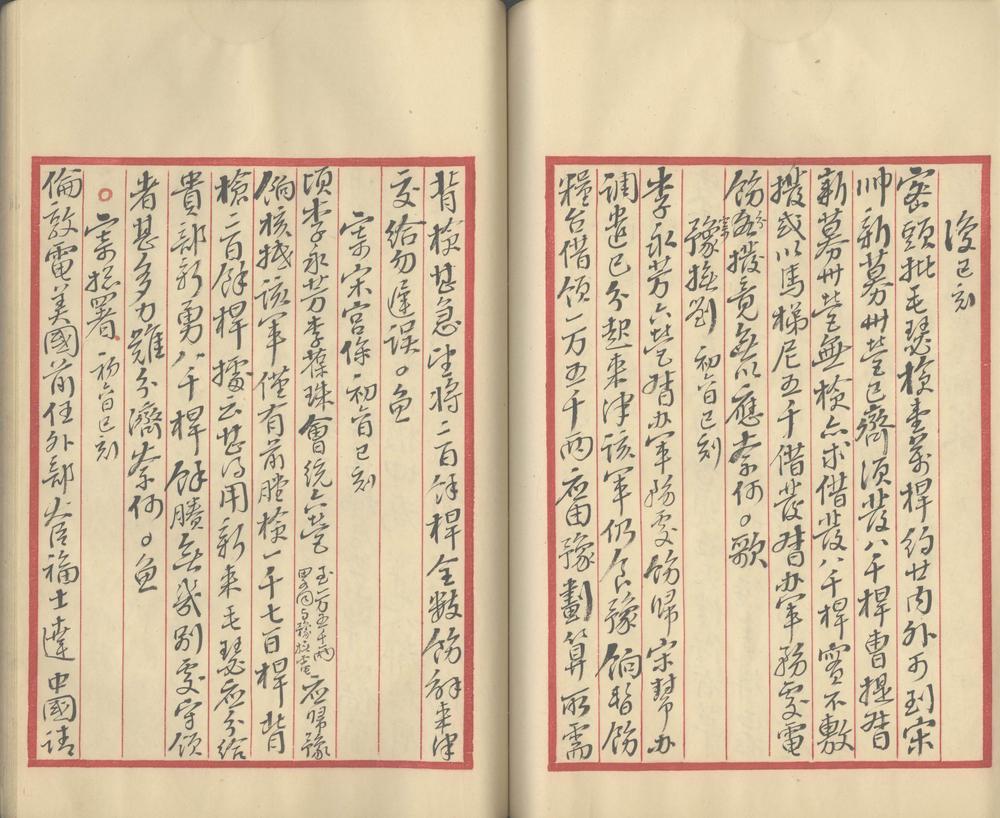 後巳刻
密頭批毛瑟槍壹萬桿約廿內外可到宋
帥新募卅營已齊須發八千桿曹提督
新募卅營無槍亦求借發八千桿實不敷
撥或以馬梯尼五千借發督办軍務處電
飭分撥竟無以應奈何。歌
寄豫撫劉 初六日巳刻
李永芳六營督办軍務處飭歸宋幫办
調遣已分起來津該軍仍食豫餉暫飭
糧台借領一万五千兩應由豫劃算所需
背槍甚急望將二百餘桿全數飭解來津
交給勿遲誤。魚
寄宋宮保 初六日巳刻
頃李永芳李葆珠會統六營至一万五千兩
畧同与豫撫電應歸豫
餉核撥該軍僅有前膛槍一千七百桿背
槍二百餘桿據云甚得用新來毛瑟應分給
貴部新勇八千桿餘賸無幾別處守領
者甚多力難分濟奈何。魚
寄總署 初六日巳刻
倫敦電美國前任外部大臣福士達中國請